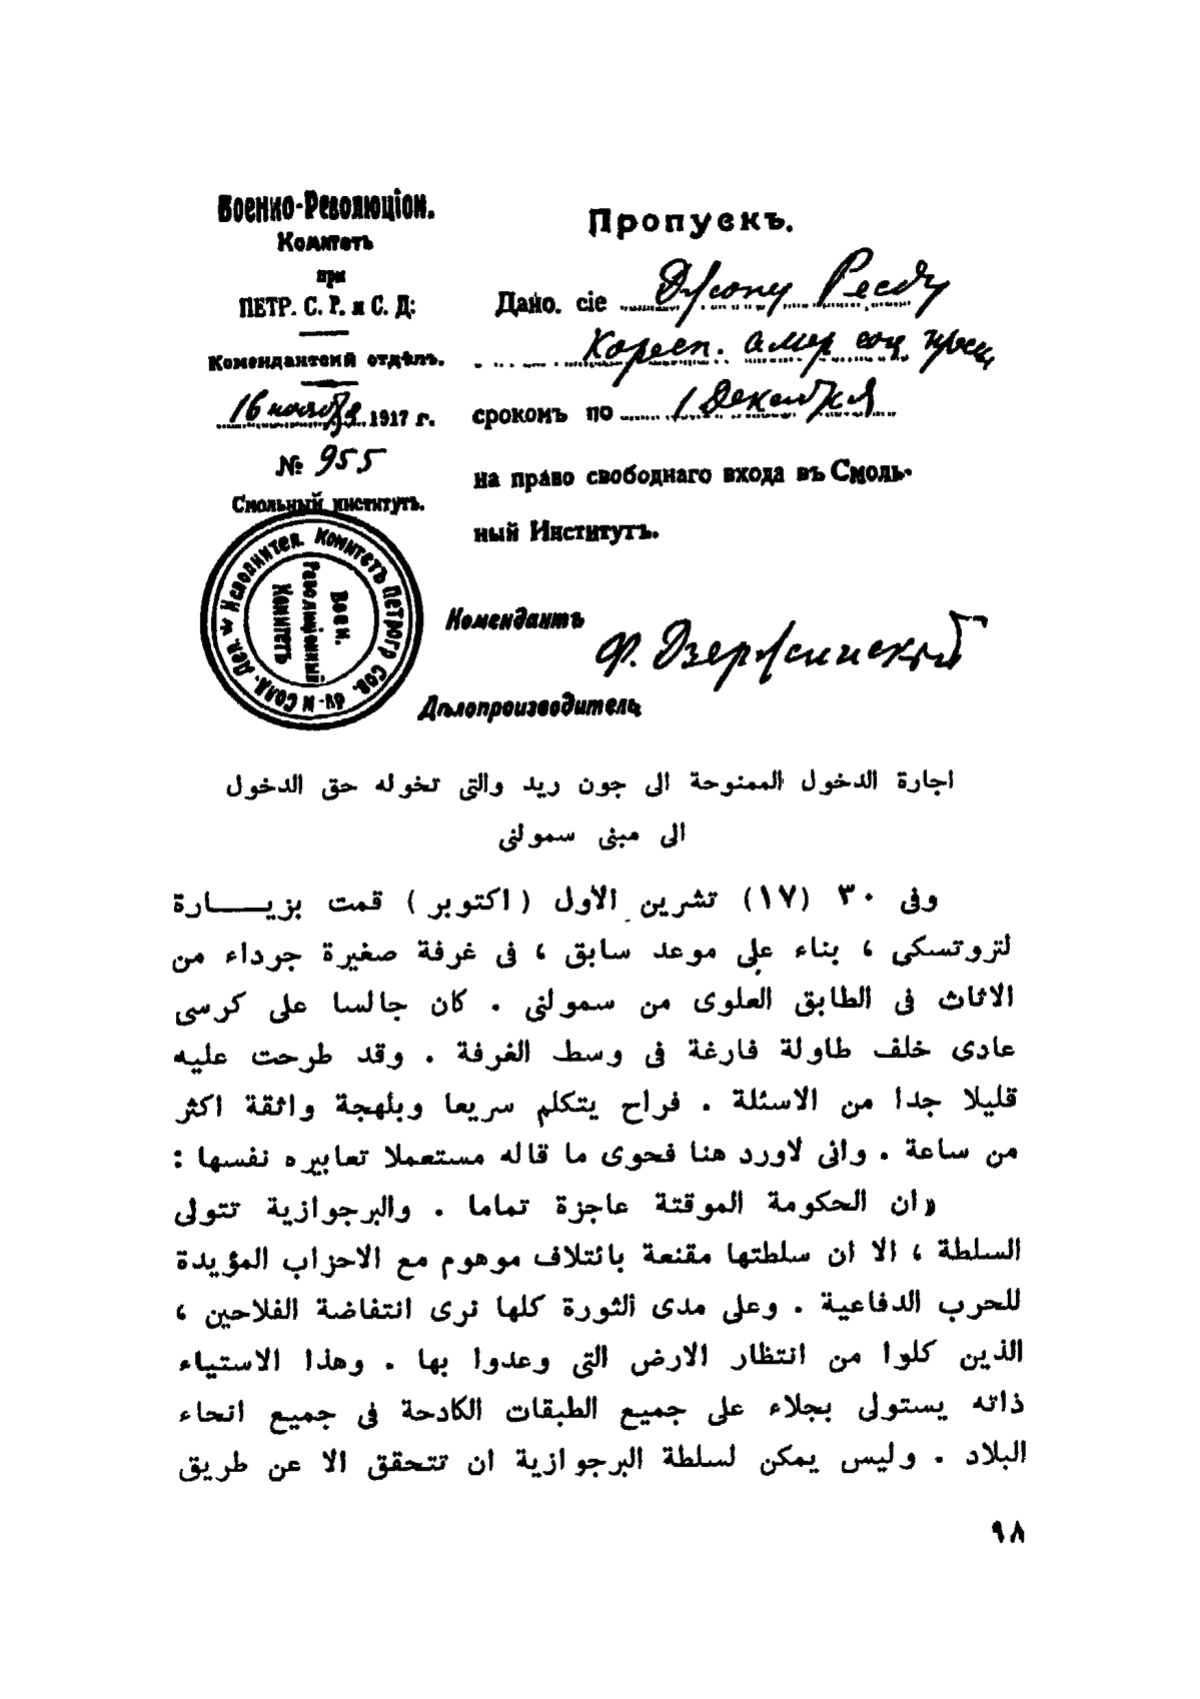 Военно-Революціон.
Комитетъ
при
ПЕТР. С. Р. и С. Д:
Комендантскій отдѣлъ.
16 ноября 1917 г.
№ 955
Смольный институтъ.
Исполнител. Комитетъ Петрогр Сов. и Солд. Деп.
Воен.
Революціонный
Комитетъ
Пропускъ.
Дано. сіе Джону Рееду
Коресп. амер соц. прес
срокомъ по 1 Декабря
на право свободнаго входа въ Смоль-
ный Институтъ.
Комендантъ
Ф. Дзержинский
Дѣлопроизводитель
اجارة الدخول الممنوحة الى جون ريد والتى تخوله حق الدخول
الى مبنى سمولنى
وفى ٣٠ (١٧) تشرين الأول (اكتوبر) قمت بزيـــارة
لتروتسكى ، بناء على موعد سابق ، فى غرفة صغيرة جرداء من
الاثاث فى الطابق العلوى من سمولنى . كان جالسا على كرسى
عادى خلف طاولة فارغة فى وسط الغرفة . وقد طرحت عليه
قليلا جدا من الاسئلة . فراح يتكلم سريعا وبلهجة واثقة اكثر
من ساعة . وانى لاورد هنا فحوى ما قاله مستعملا تعابيره نفسها :
«ان الحكومة الموقتة عاجزة تماما . والبرجوازية تتولى
السلطة ، الا ان سلطتها مقنعة بائتلاف موهوم مع الاحزاب المؤيدة
للحرب الدفاعية . وعلى مدى الثورة كلها نرى انتفاضة الفلاحين ،
الذين كلوا من انتظار الارض التى وعدوا بها . وهذا الاستياء
ذاته يستولى بجلاء على جميع الطبقات الكادحة فى جميع انحاء
البلاد . وليس يمكن لسلطة البرجوازية ان تتحقق الا عن طريق
٩٨